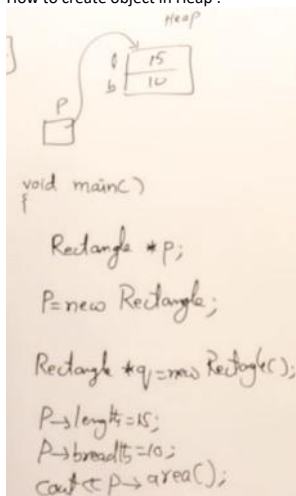 How to create object in Heap :
Heap
l 15
b 10
P
void main()
{
Rectangle *p;
P=new Rectangle;
Rectangle *q=new Rectagle();
P→length=15;
P→breadth=10;
cout << P→area();